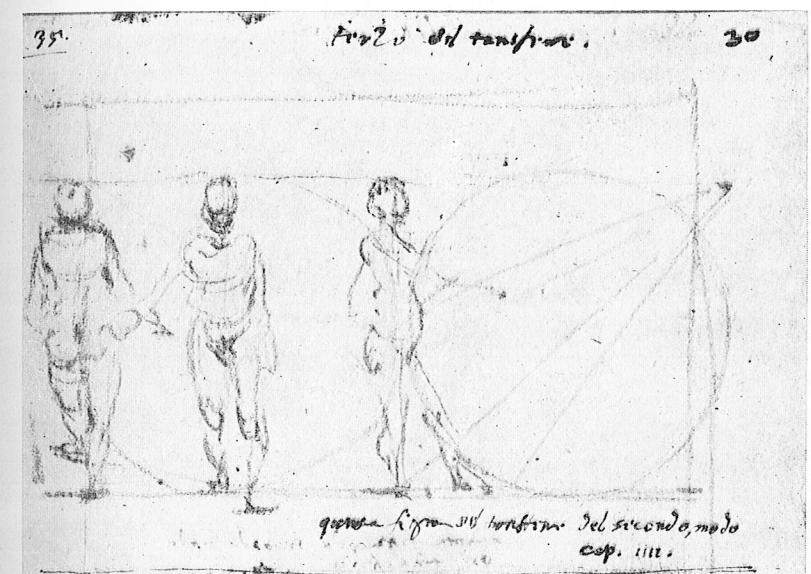 35.
terzo del transfire.
30
quarta figura del transfire del secondo modo
cap. iiii.